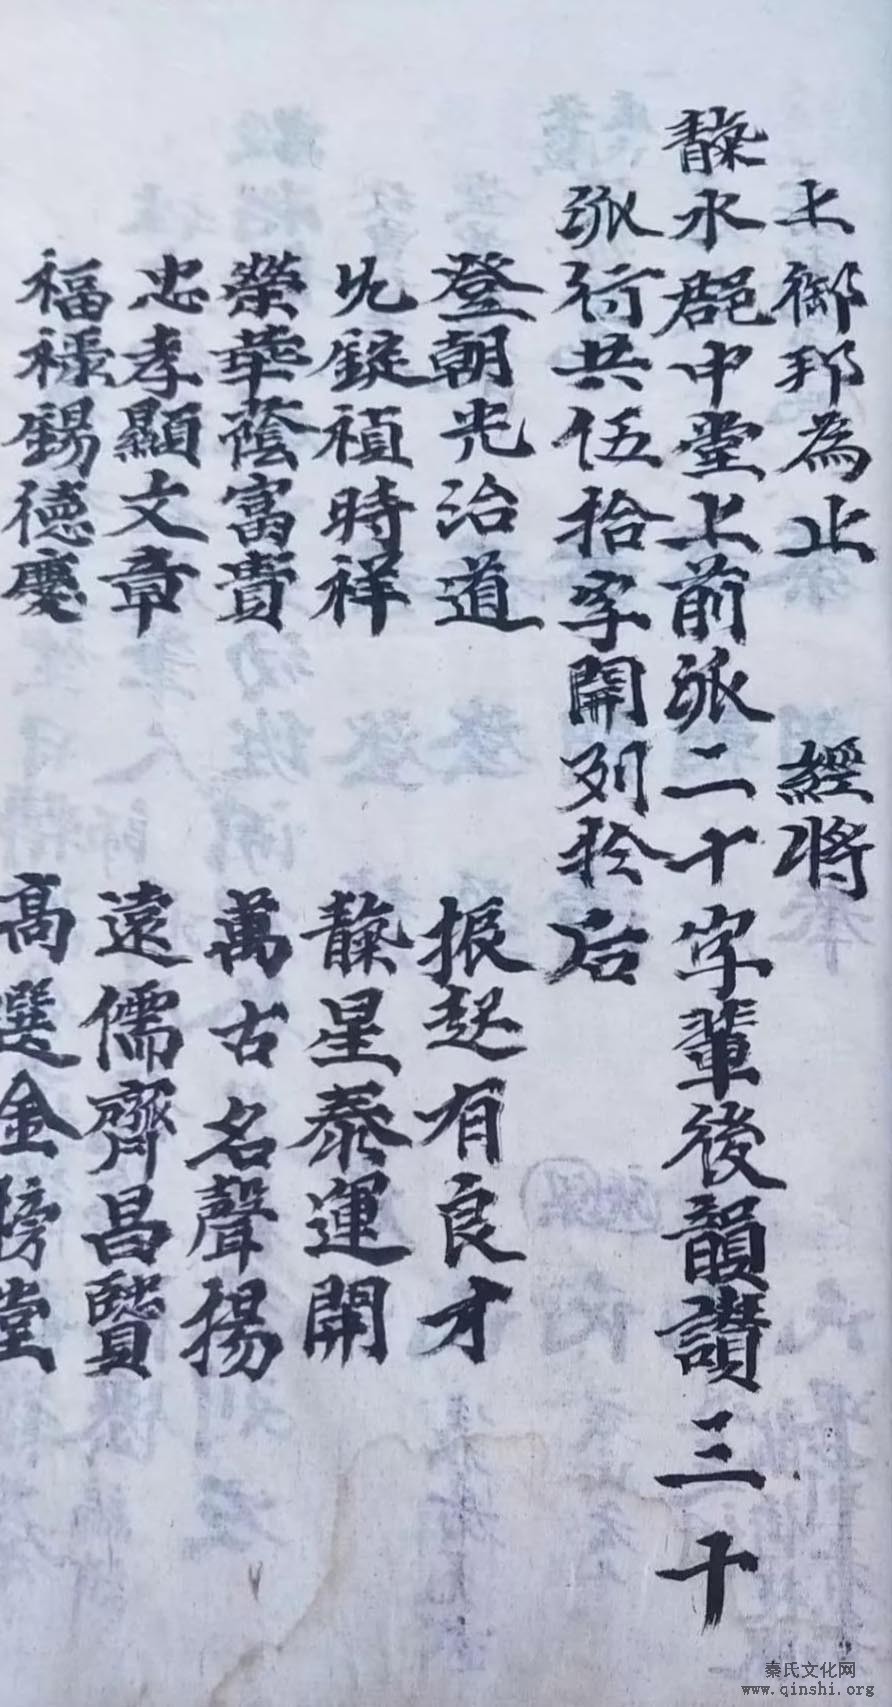 上御邦為止　經將
靝水郡中堂上前派二十字輩後韻讃三十
派衍共伍拾字開列於后
登朝光治道　振起有良才
錠禎時祥　靝星泰運開
榮華蔭富貴　萬古名聲揚
忠孝顯文章　遠儒齊昌賢
福祿錫德慶　高選金榜堂
秦氏文化网
www.qinshi.org